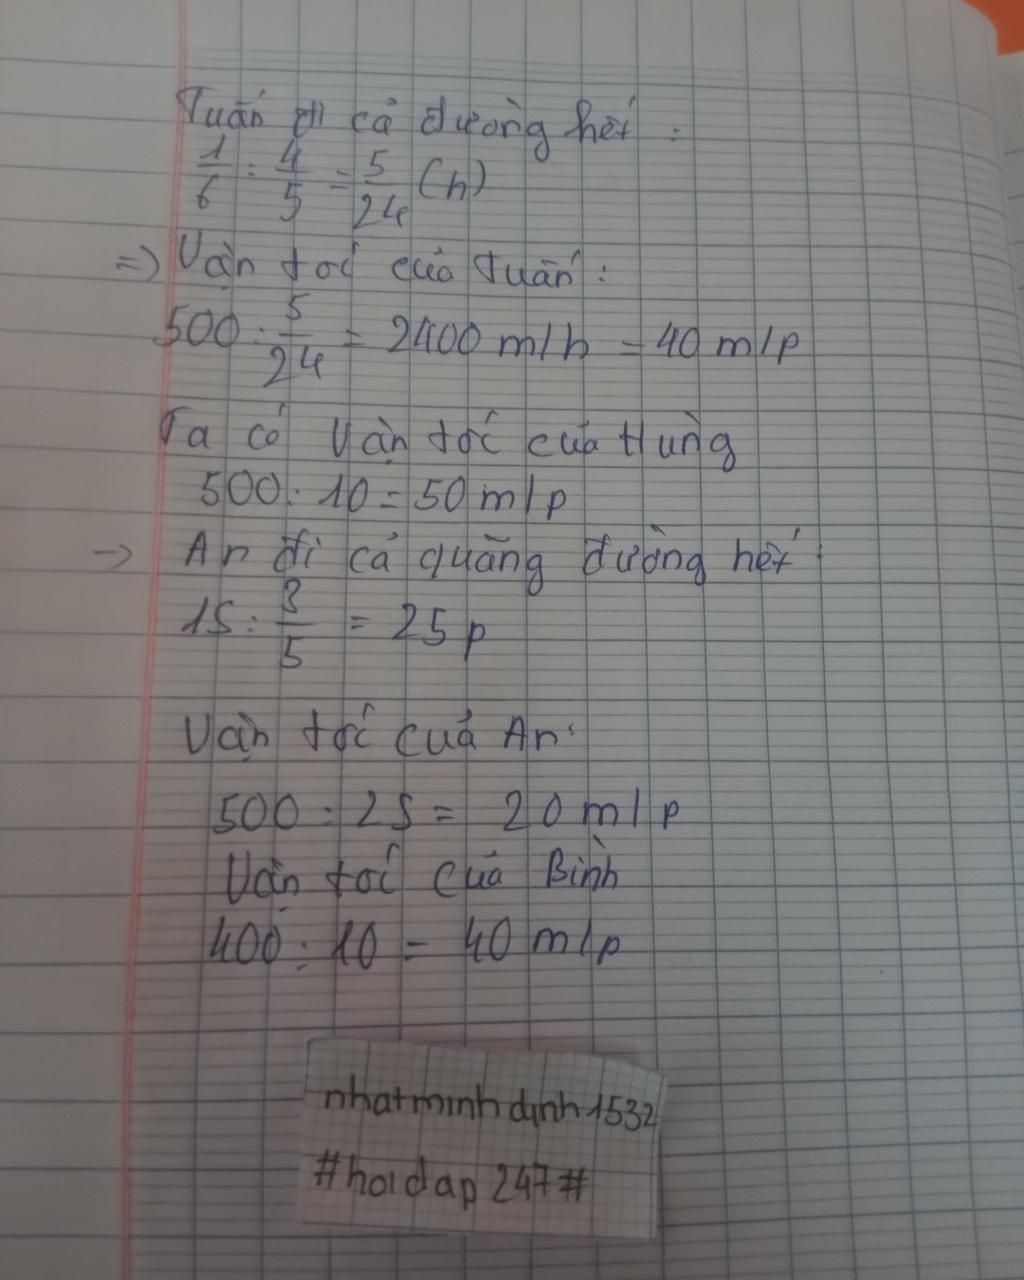 Tuấn đi cả đường hết :
1/6 : 4/5 = 5/24 (h)
=> Vận tốc của Tuấn :
500 : 5/24 = 2400 m/h = 40 m/p
Ta có vận tốc của Hùng
500 : 10 = 50 m/p
-> An đi cả quãng đường hết :
15 : 3/5 = 25 p
Vận tốc của An :
500 : 25 = 20 m/p
Vận tốc của Bình
400 : 10 = 40 m/p
nhatminhdinh1532
#hoidap247#